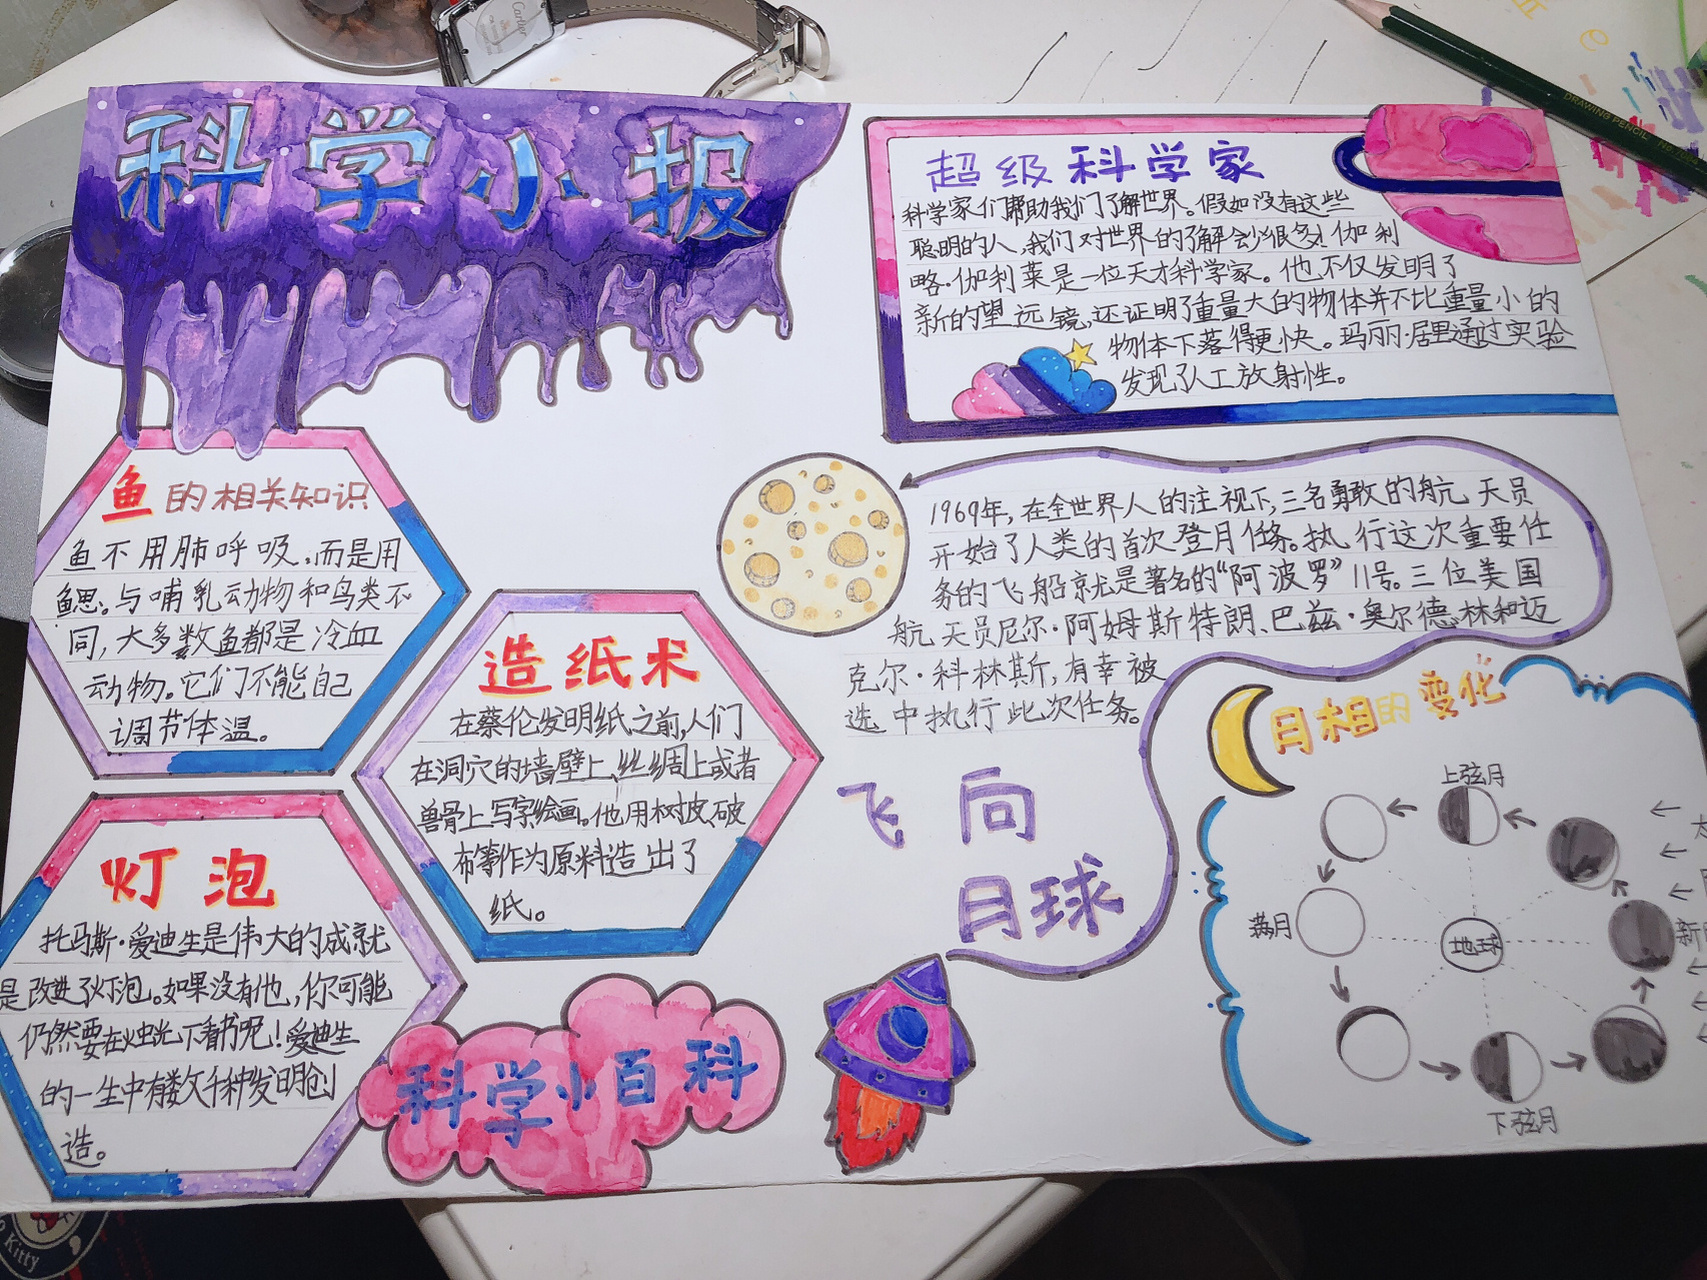 科学小报
超级科学家
科学家们帮助我们了解世界。假如没有这些
聪明的人,我们对世界的了解会少很多!伽利
略·伽利莱是一位天才科学家。他不仅发明了
新的望远镜,还证明了重量大的物体并不比重量小的
物体下落得更快。玛丽·居里通过实验
发现了人工放射性。
鱼的相关知识
鱼不用肺呼吸,而是用
鱼思。与哺乳动物和鸟类不
同,大多数鱼都是冷血
动物。它们不能自己
调节体温。
造纸术
在蔡伦发明纸之前,人们
在洞穴的墙壁上、丝绸上或者
兽骨上写字绘画。他用树皮、破
布等作为原料造出了
纸。
灯泡
托马斯·爱迪生是伟大的成就
是改进了灯泡。如果没有他,你可能
仍然要在烛光下看书呢!爱迪生
的一生中有数千种发明创
造。
科学小百科
1969年,在全世界人的注视下,三名勇敢的航天员
开始了人类的首次登月任务。执行这次重要任
务的飞船就是著名的“阿波罗”11号。三位美国
航天员尼尔·阿姆斯特朗、巴兹·奥尔德林和迈
克尔·科林斯,有幸被
选中执行此次任务。
飞向
月球
月相的变化
上弦月
满月
地球
新
下弦月
DRAWING PENCIL
Cartier
Kitty